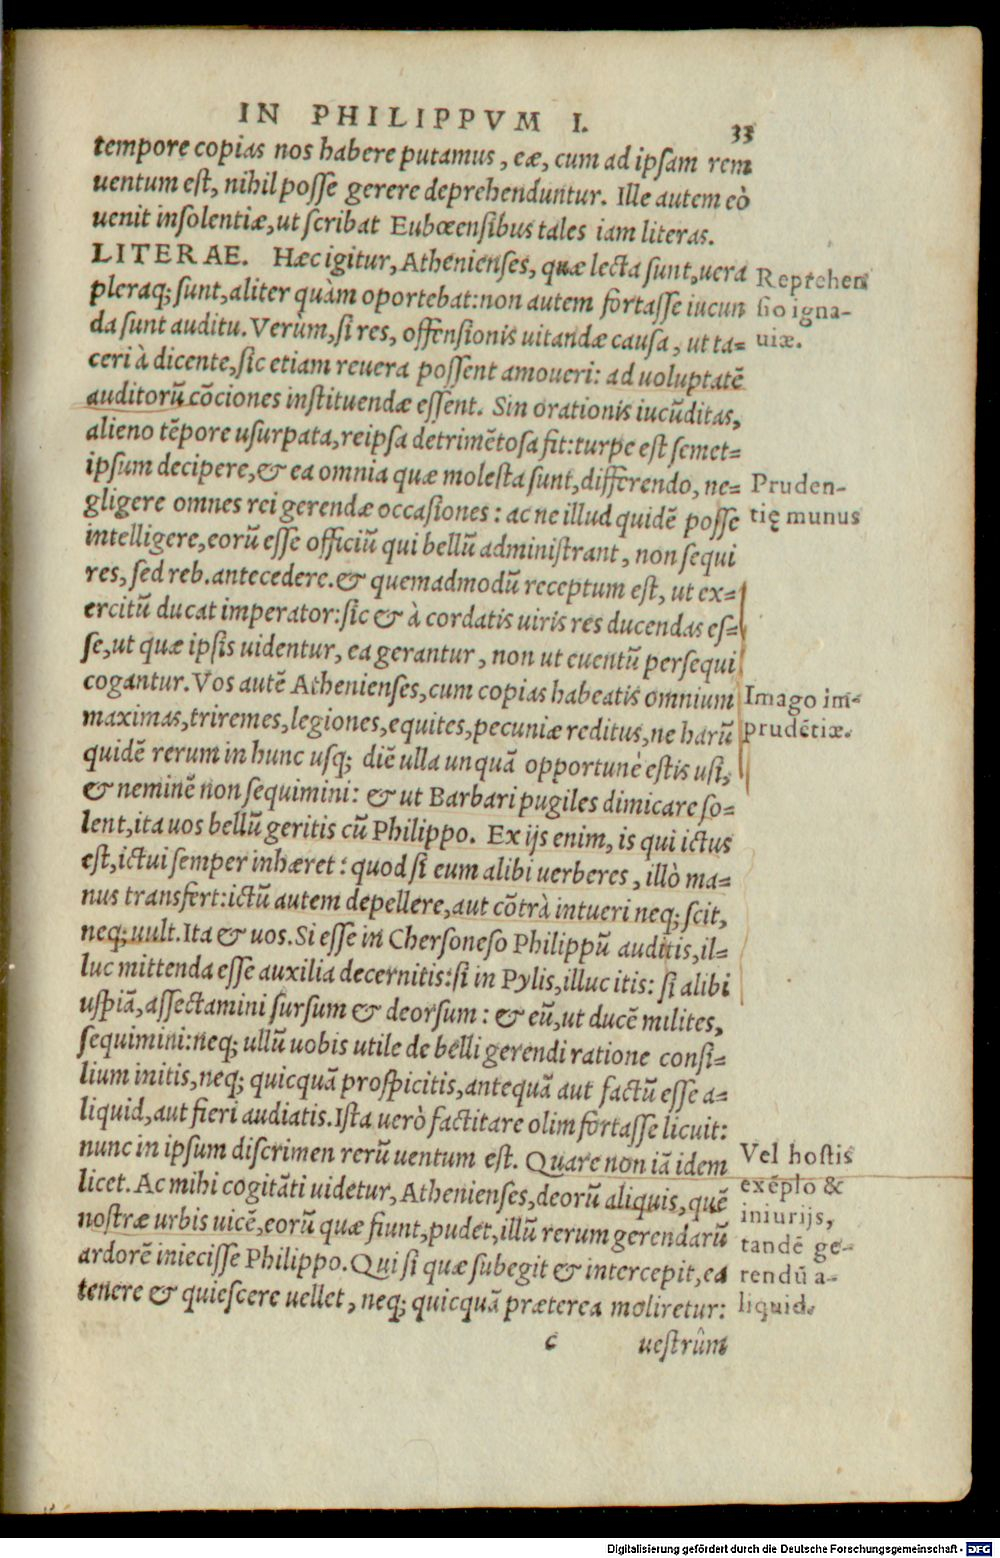 IN PHILIPPVM I. 33
tempore copias nos habere putamus, eæ, cum ad ipsam rem
uentum est, nihil posse gerere deprehenduntur. Ille autem eò
uenit insolentiæ, ut scribat Eubœensibus tales iam literas.
LITERAE. Hæc igitur, Athenienses, quæ lecta sunt, uera
pleraq; sunt, aliter quàm oportebat: non autem fortasse iucun
da sunt auditu. Verùm, si res, offensionis uitandæ causa, ut ta=
ceri à dicente, sic etiam reuera possent amoueri: ad uoluptatẽ
auditorũ cõciones instituendæ essent. Sin orationis iucũditas,
alieno tẽpore usurpata, reipsa detrimẽtosa fit: turpe est semet=
ipsum decipere, & ea omnia quæ molesta sunt, differendo, ne=
gligere omnes rei gerendæ occasiones: ac ne illud quidẽ posse
intelligere, eorũ esse officiũ qui bellũ administrant, non sequi
res, sed reb. antecedere. & quemadmodũ receptum est, ut ex=
ercitũ ducat imperator: sic & à cordatis uiris res ducendas es=
se, ut quæ ipsis uidentur, ea gerantur, non ut euentũ persequi
cogantur. Vos autẽ Athenienses, cum copias habeatis omnium
maximas, triremes, legiones, equites, pecuniæ reditus, ne harũ
quidẽ rerum in hunc usq; diẽ ulla unquã opportunè estis usi,
& neminẽ non sequimini: & ut Barbari pugiles dimicare so=
lent, ita uos bellũ geritis cũ Philippo. Ex ijs enim, is qui ictus
est, ictui semper inhæret: quod si eum alibi uerberes, illò ma=
nus transfert: ictũ autem depellere, aut cõtrà intueri neq; scit,
neq; uult. Ita & uos. Si esse in Chersoneso Philippũ auditis, il=
luc mittenda esse auxilia decernitis: si in Pylis, illuc itis: si alibi
uspiã, assectamini sursum & deorsum: & eũ, ut ducẽ milites,
sequimini: neq; ullũ uobis utile de belli gerendi ratione consi=
lium initis, neq; quicquã prospicitis, antequã aut factũ esse a=
liquid, aut fieri audiatis. Ista uerò factitare olim fortasse licuit:
nunc in ipsum discrimen rerũ uentum est. Quare non iã idem
licet. Ac mihi cogitãti uidetur, Athenienses, deorũ aliquis, quẽ
nostræ urbis uicẽ, eorũ quæ fiunt, pudet, illũ rerum gerendarũ
ardorẽ iniecisse Philippo. Qui si quæ subegit & intercepit, ea
tenere & quiescere uellet, neq; quicquã præterea moliretur:
c uestrûm
Reprehen
sio igna-
uiæ.
Pruden-
tię munus
Imago im-
prudẽtiæ.
Vel hostis
exẽplo &
iniurijs,
tandẽ ge-
rendũ a-
liquid.
Digitalisierung gefördert durch die Deutsche Forschungsgemeinschaft - DFG